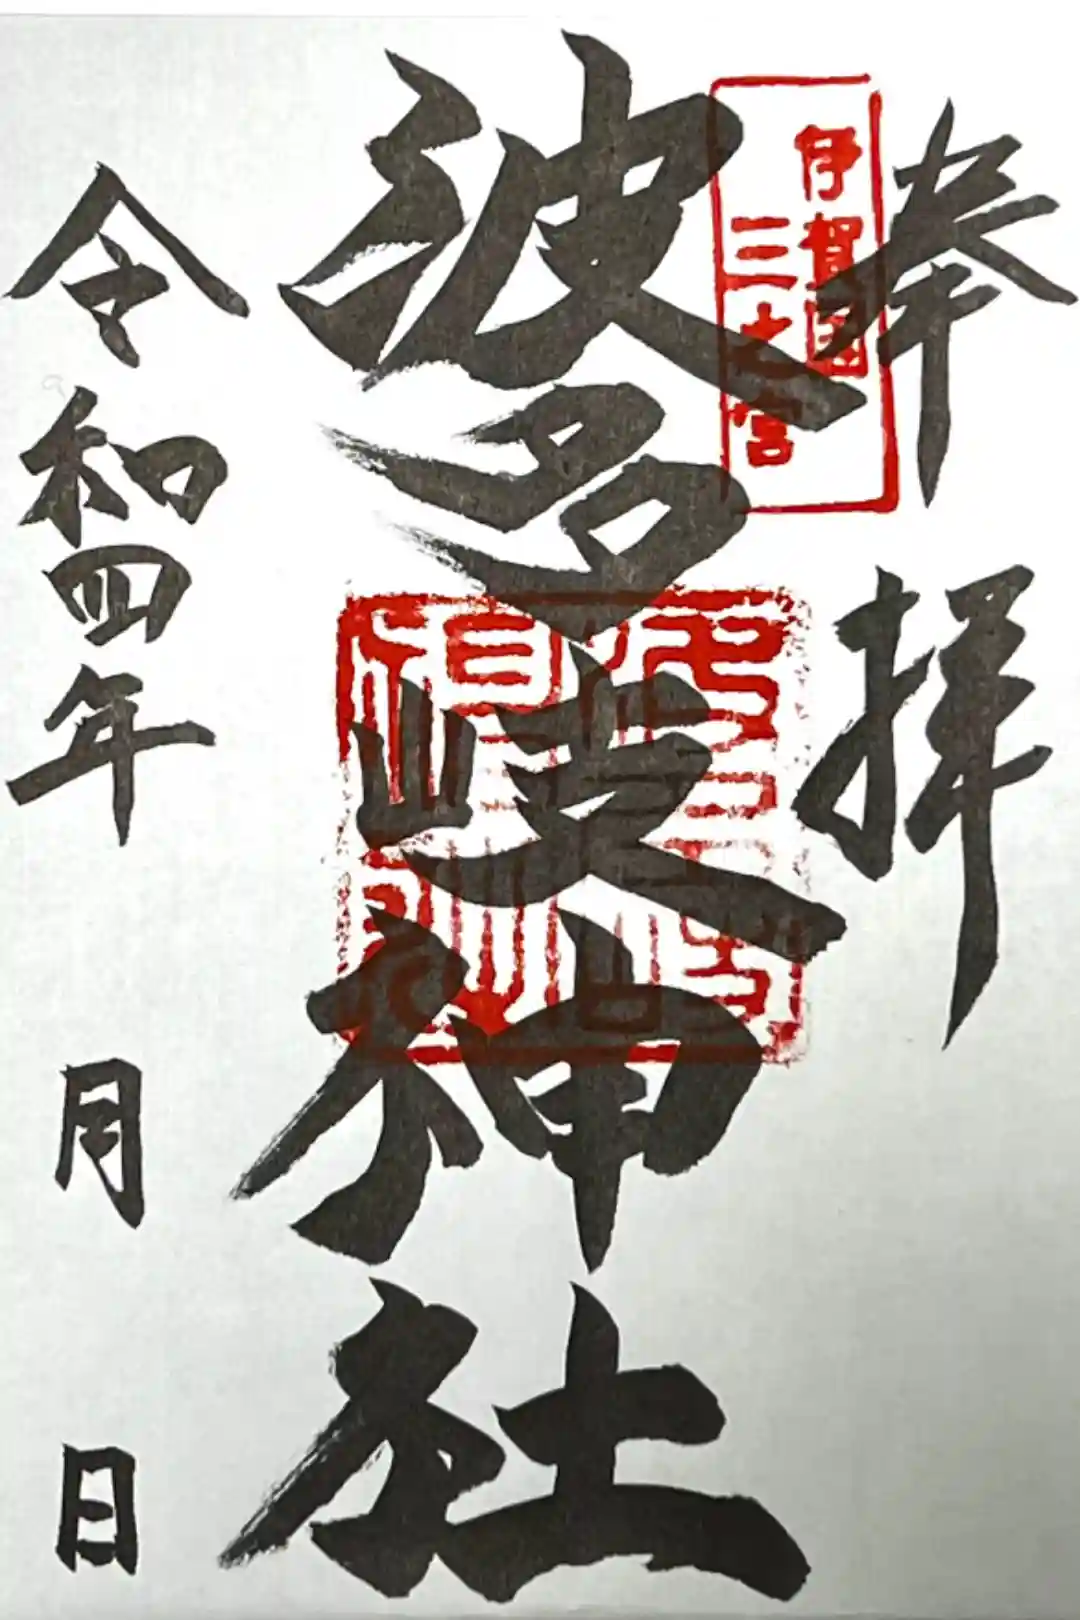 奉拝
伊賀國
三之宮
波多岐神社
令和四年 月 日